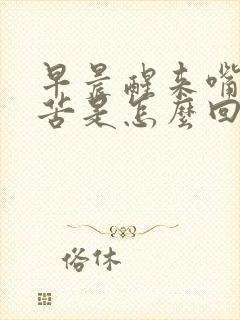 早晨醒来嘴
苦是怎麽回
俗休